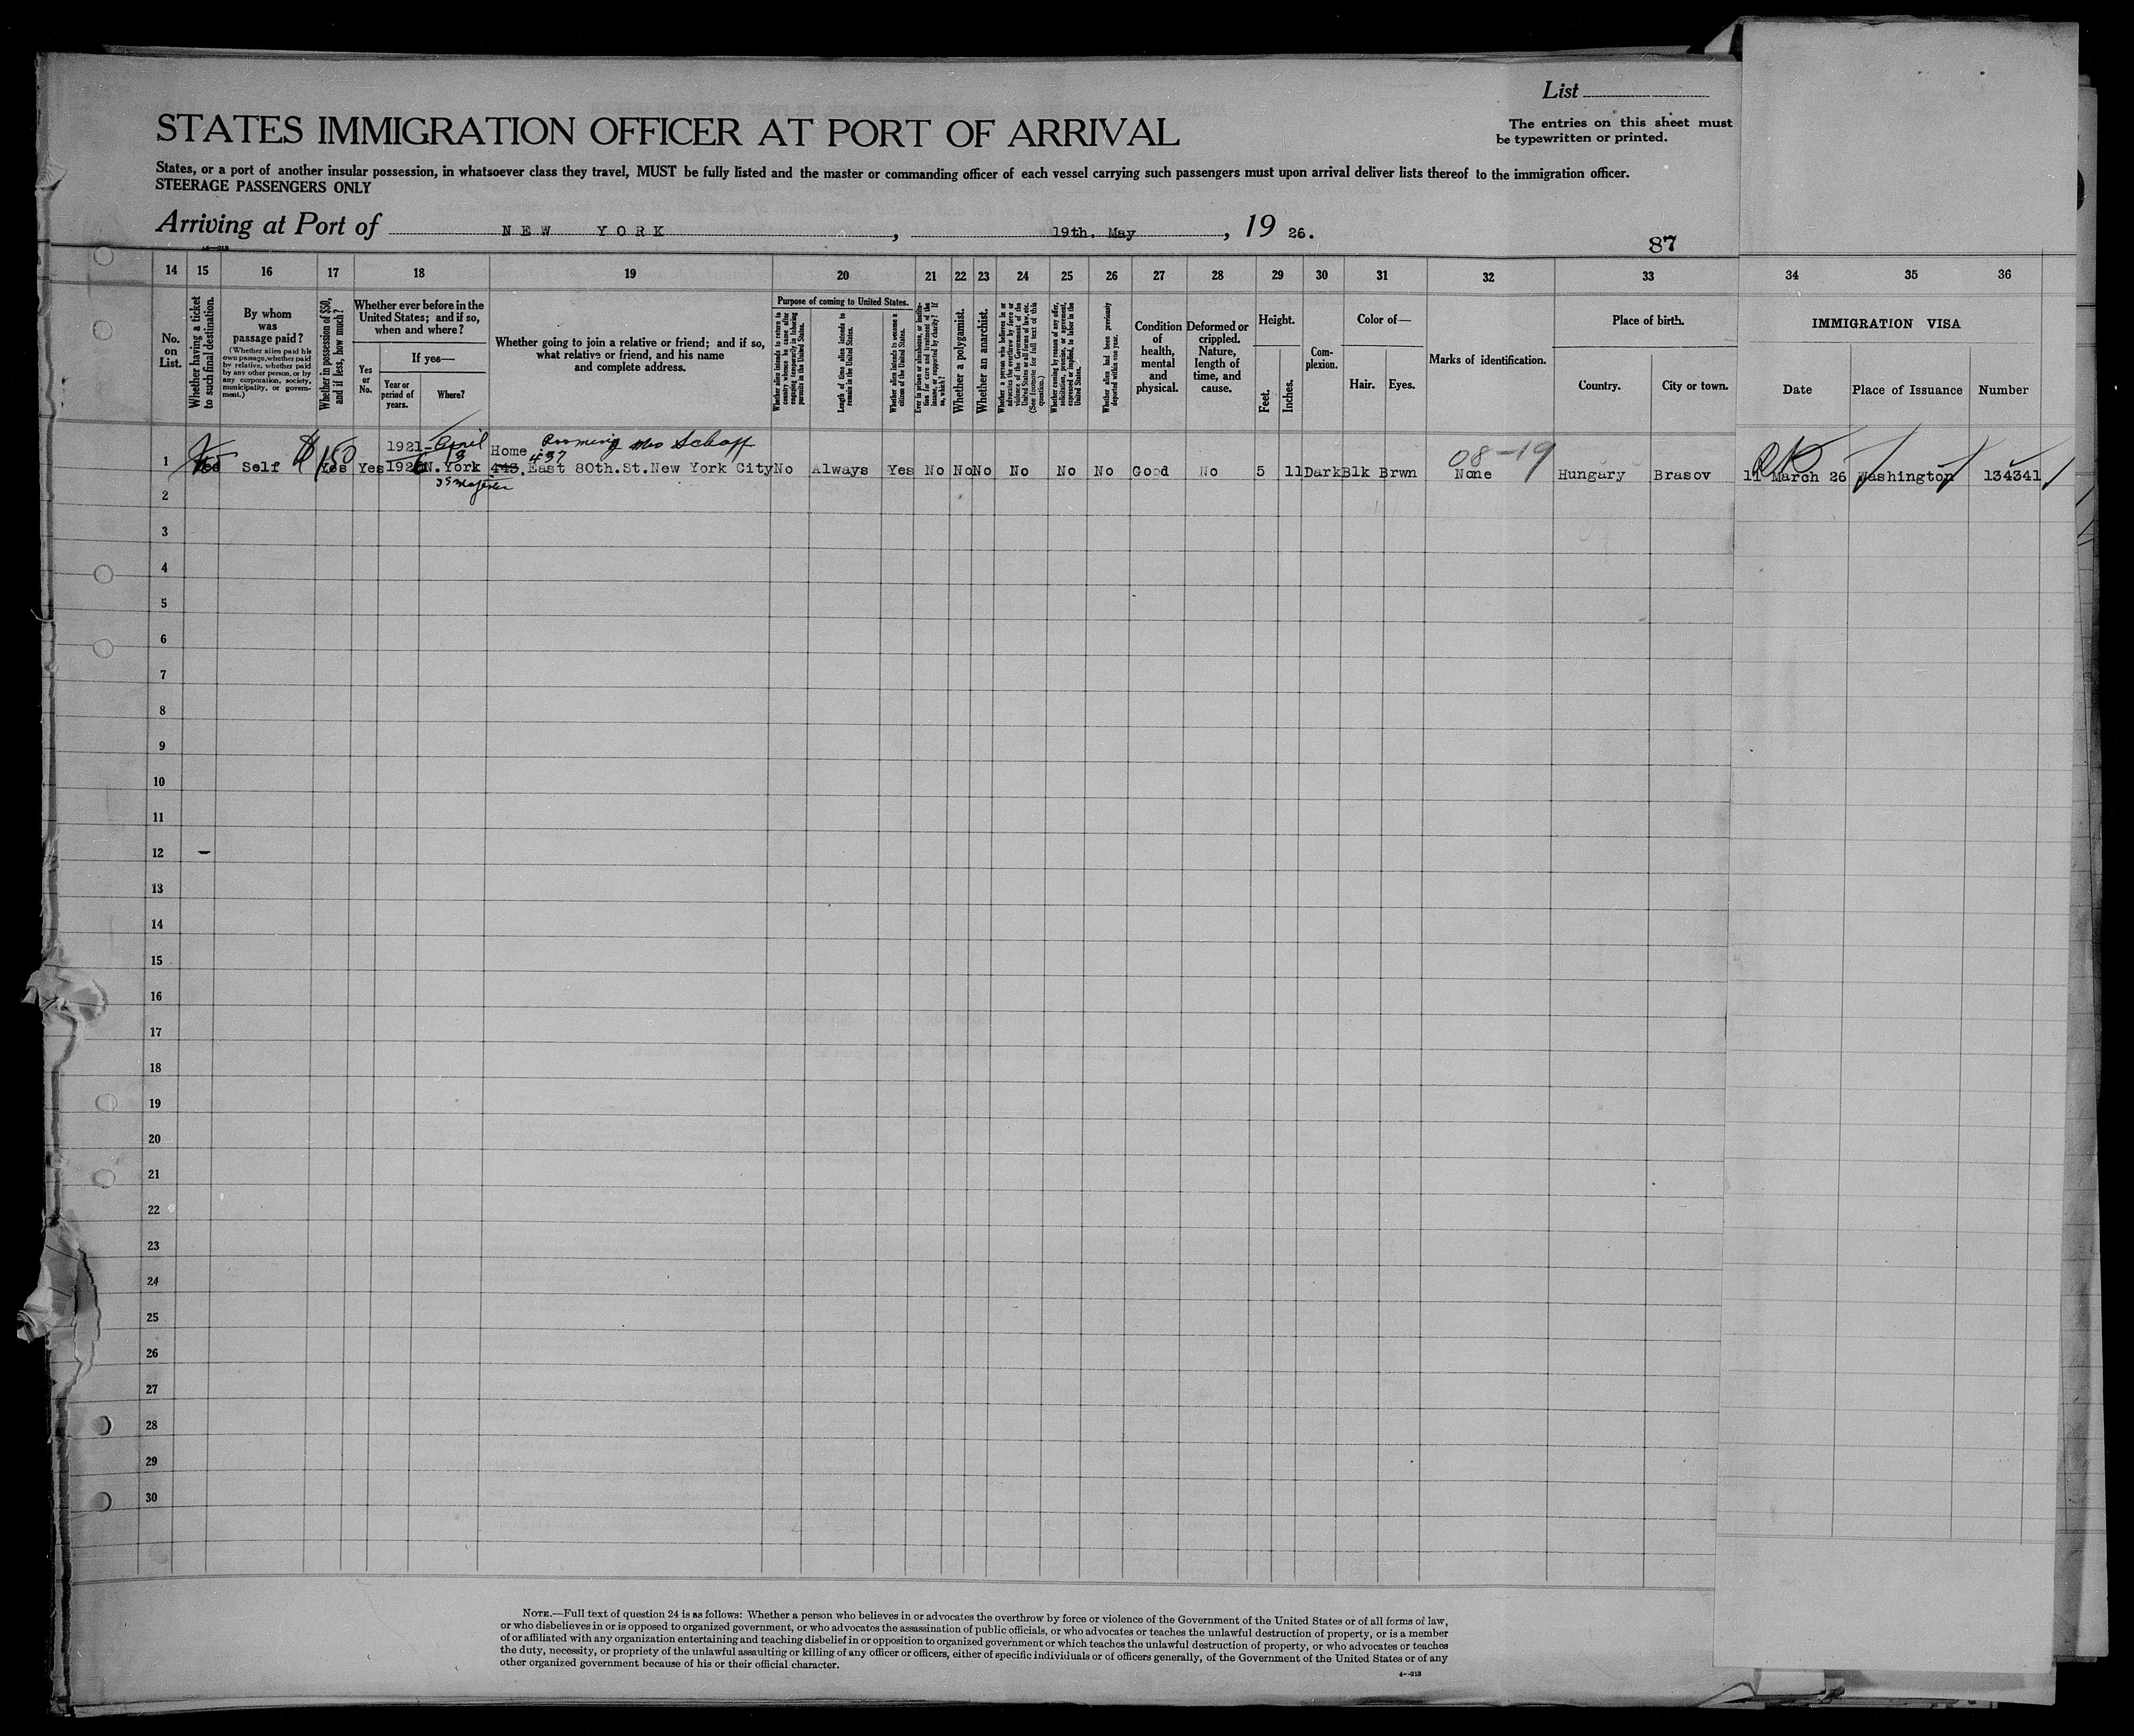 List
The entries on this sheet must
be typewritten or printed.
STATES IMMIGRATION OFFICER AT PORT OF ARRIVAL
States, or a port of another insular possession, in whatsoever class they travel, MUST be fully listed and the master or commanding officer of each vessel carrying such passengers must upon arrival deliver lists thereof to the immigration officer.
STEERAGE PASSENGERS ONLY
Arriving at Port of NEW YORK, 19th. May, 19 26.
87
14 15 16 17 18 19 20 21 22 23 24 25 26 27 28 29 30 31 32 33 34 35 36
No.
on
List.
Whether having a ticket
to such final destination.
By whom
was
passage paid?
(Whether alien paid his
own passage, whether paid
by relative, whether paid
by any other person, or by
any corporation, society,
municipality, or govern-
ment.)
Whether in possession of $50,
and if less, how much?
Whether ever before in the
United States; and if so,
when and where?
Yes
or
No.
If yes—
Year or
period of
years.
Where?
Whether going to join a relative or friend; and if so,
what relative or friend, and his name
and complete address.
Purpose of coming to United States.
Whether alien intends to return to
country whence he came after
engaging temporarily in laboring
pursuits in the United States.
Length of time alien intends to
remain in the United States.
Whether alien intends to become a
citizen of the United States.
Ever in prison or almshouse, or institu-
tion for care and treatment of the
insane, or supported by charity? If
so, which?
Whether a polygamist.
Whether an anarchist.
Whether a person who believes in or
advocates the overthrow by force or
violence of the Government of the
United States or all forms of law, etc.
(See footnote for full text of this
question.)
Whether coming by reason of any offer,
solicitation, promise, or agreement,
expressed or implied, to labor in the
United States.
Whether alien had been previously
deported within one year.
Condition
of
health,
mental
and
physical.
Deformed or
crippled.
Nature,
length of
time, and
cause.
Height.
Feet.
Inches.
Com-
plexion.
Color of—
Hair.
Eyes.
Marks of identification.
Place of birth.
Country.
City or town.
IMMIGRATION VISA
Date
Place of Issuance
Number
1921-April Home Rooming Mrs Schaff 08-19 OK
13 437
1 Yes Self $150 Yes Yes 1926 N.York 443, East 80th.St.New York City No Always Yes No No No No No No Good No 5 11 Dark Blk Brwn None Hungary Brasov 11 March 26 Washington 134341
SS Majestic
2
3
4
5
6
7
8
9
10
11
12 -
13
14
15
16
17
18
19
20
21
22
23
24
25
26
27
28
29
30
NOTE.—Full text of question 24 is as follows: Whether a person who believes in or advocates the overthrow by force or violence of the Government of the United States or of all forms of law,
or who disbelieves in or is opposed to organized government, or who advocates the assassination of public officials, or who advocates or teaches the unlawful destruction of property, or is a member
of or affiliated with any organization entertaining and teaching disbelief in or opposition to organized government or which teaches the unlawful destruction of property, or who advocates or teaches
the duty, necessity, or propriety of the unlawful assaulting or killing of any officer or officers, either of specific individuals or of officers generally, of the Government of the United States or of any
other organized government because of his or their official character.
4—213